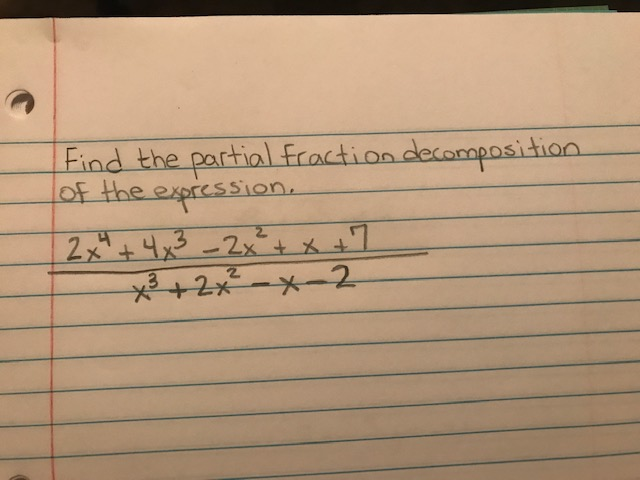 Find the partial fraction decomposition
of the expression.
2x⁴ + 4x³ - 2x² + x + 7
x³ + 2x² - x - 2